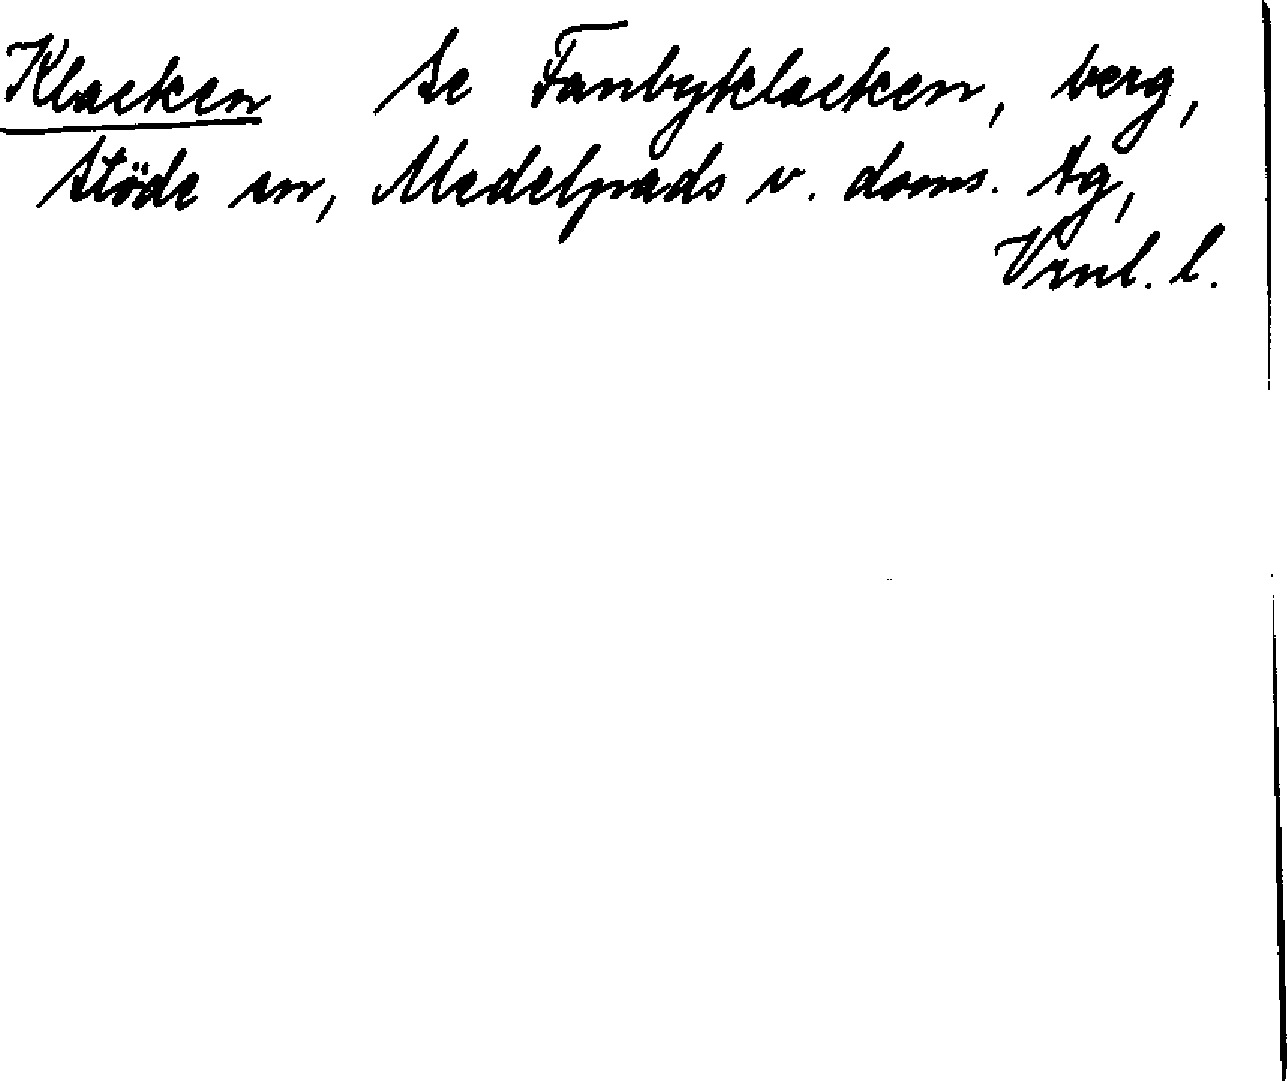 Klacken Se Fanbyklacken, berg,
Stöde sn, Medelpads v. doms. tg,
Vrnl. l.